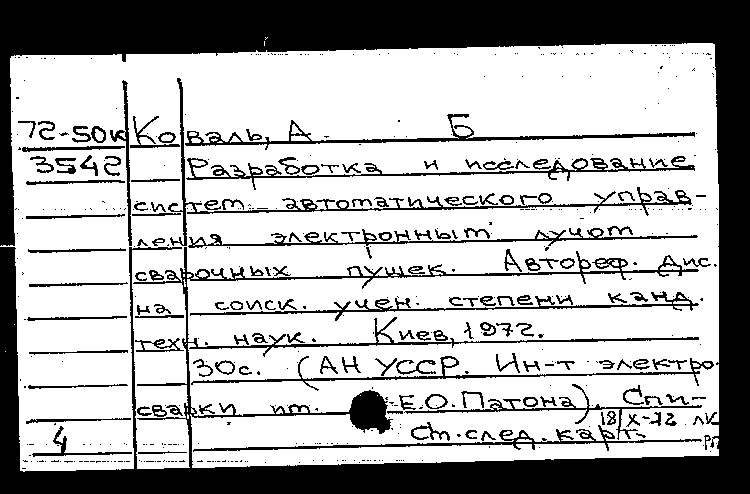 72-50к Коваль, А. Б
3542 Разработка и исследование
систем автоматического управ-
ления электронным лучом
сварочных пушек. Автореф. дис.
на соиск. учен. степени канд.
техн. наук. Киев, 1972.
30с. (АН УССР. Ин-т электро-
сварки им. Е.О.Патона). Спи-
18/X-72 ЛК
4 См.след.карт.
РП